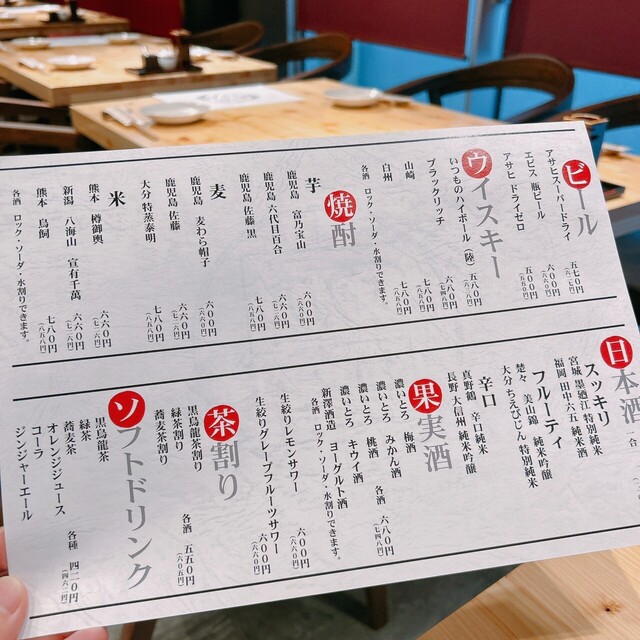 ビール
アサヒスーパードライ 五七〇円
エビス 瓶ビール 六〇〇円
アサヒ ドライゼロ 五〇〇円
ウイスキー
いつものハイボール(陸) 五八〇円
ブラックリッチ
山崎
白州
各酒 ロック・ソーダ・水割りできます。
焼酎
芋
鹿児島 富乃宝山 六〇〇円(六六〇円)
鹿児島 六代目百合 六六〇円
鹿児島 佐藤 黒 七八〇円
麦
鹿児島 麦わら帽子 六〇〇円(六六〇円)
鹿児島 佐藤 六六〇円(七二六円)
大分 特蒸泰明 七八〇円(八五八円)
米
熊本 樽御輿 六六〇円(七二六円)
新潟 八海山 宜有千萬 六六〇円(七二六円)
熊本 鳥飼 七八〇円(八五八円)
各酒 ロック・ソーダ・水割りできます。
日本酒
スッキリ
宮城 墨廼江 特別純米
福岡 田中六五 純米酒
フルーティ
楚々 美山錦 純米吟醸
大分 ちえびじん 特別純米
辛口
真野鶴 辛口純米
長野 大信州 純米吟醸
果実酒
濃いとろ 梅酒
濃いとろ みかん酒
濃いとろ 桃酒
濃いとろ キウイ酒
新澤酒造 ヨーグルト酒
各酒 六八〇円(七四八円)
各酒 ロック・ソーダ・水割りできます。
生絞りレモンサワー 六〇〇円(六六〇円)
生絞りグレープフルーツサワー 六〇〇円(六六〇円)
茶割り
黒烏龍茶割り
緑茶割り
蕎麦茶割り
各酒 五五〇円(六〇五円)
ソフトドリンク
黒烏龍茶
緑茶
蕎麦茶
オレンジジュース
コーラ
ジンジャーエール
各種 四二〇円(四六二円)